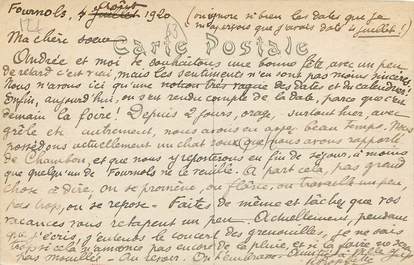 Fournols, 4 août 1920 (on ignore si bien les dates que je m'aperçois que j'avais daté 4 juillet !)
Ma chère soeur
Carte Postale
Andrée et moi te souhaitons une bonne fête, avec un peu
de retard c'est vrai, mais les sentiments n'en sont pas moins sincères.
Nous n'avons ici qu'une notion très vague des dates et du calendrier !
Enfin, aujourd'hui, on s'est rendu compte de la date, parce que c'est
demain la foire ! Depuis 2 jours, orage, surtout hier, avec
grêle et autrement, nous avons eu assez beau temps. Nous
possédons actuellement un chat roux que nous avons rapporté
de Chambon, et que nous reporterons en fin de séjour, à moins
que quelqu'un de Fournols ne le veuille. A part cela, pas grand
chose à dire, on se promène, on flâne, on travaille un peu
pas trop, on se repose. Faites de même et tâchez que vos
vacances vous retapent un peu. Actuellement, pendant
que j'écris, j'entends le concert des grenouilles, je ne sais
trop si cela annonce pas encore de la pluie, et si la foire ne sera
pas mouillée. Au revoir. On t'embrasse. Amitiés à